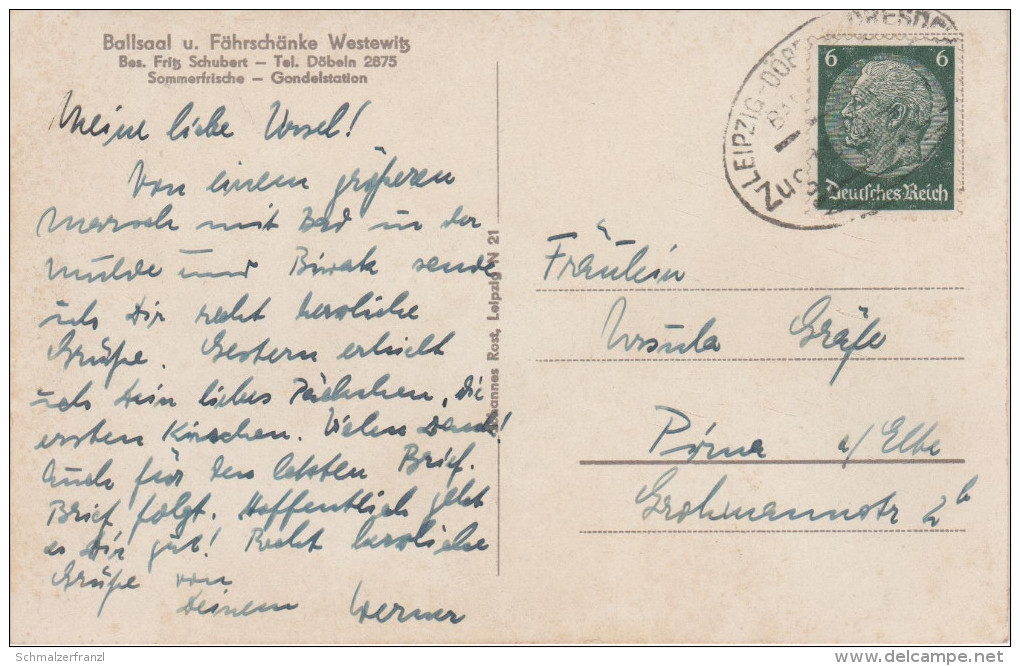 Ballsaal u. Fährschänke Westewitz
Bes. Fritz Schubert – Tel. Döbeln 2875
Sommerfrische – Gondelstation
Meine liebe Ursel!
Von einem größeren
Marsch mit Bad in der
Mulde und Biwak sende
ich Dir recht herzliche
Grüße. Gestern erhielt
ich Dein liebes Päckchen, die
ersten Kirschen. Vielen Dank!
Auch für den letzten Brief.
Brief folgt. Hoffentlich geht
es Dir gut! Recht herzliche
Grüße von
Deinem Werner
Johannes Rost, Leipzig N 21
LEIPZIG-DÖB
DRESD
6 6
Deutsches Reich
Fräulein
Ursula Gräfe
Pirna a/Elbe
Grohmannstr 2b
Schmalzerfranzl
delcampe.net